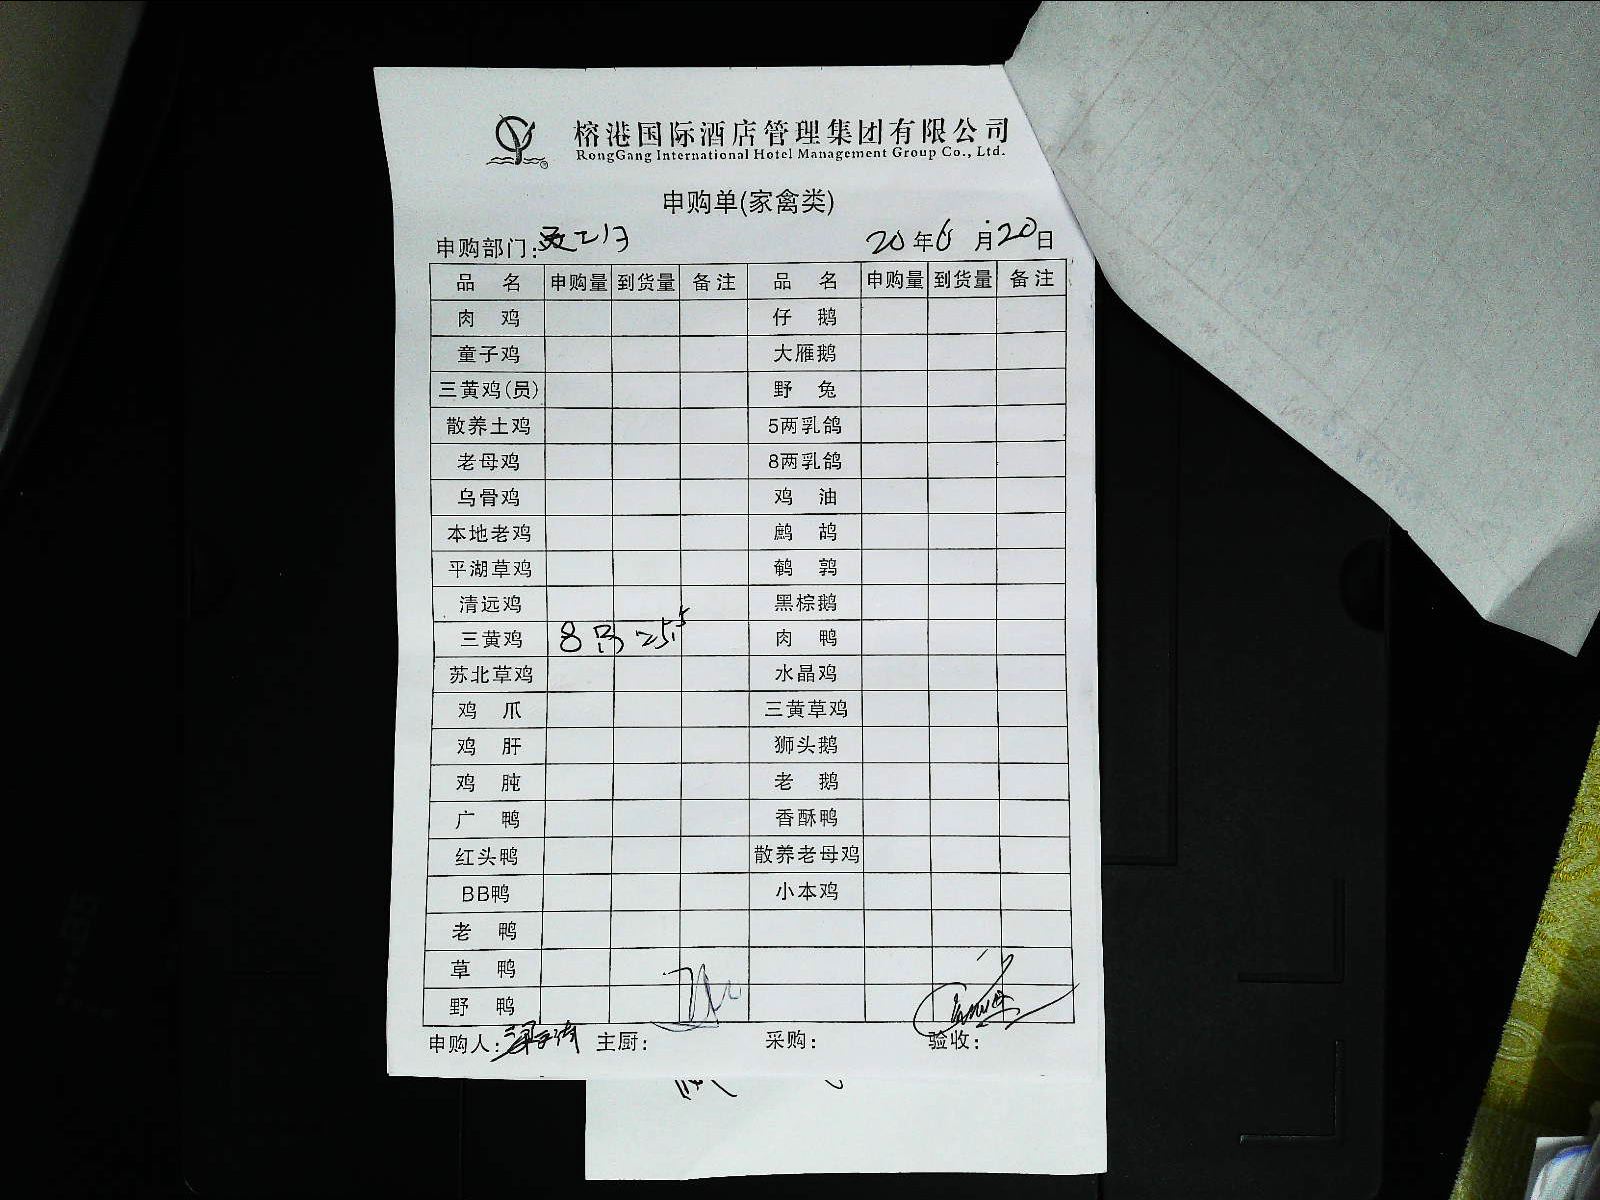 榕港国际酒店管理集团有限公司
RongGang International Hotel Management Group Co., Ltd.
申购单(家禽类)
申购部门: 20年6月20日
品名 申购量 到货量 备注 品名 申购量 到货量 备注
肉鸡 仔鹅
童子鸡 大雁鹅
三黄鸡(员) 野兔
散养土鸡 5两乳鸽
老母鸡 8两乳鸽
乌骨鸡 鸡油
本地老鸡 鹧鸪
平湖草鸡 鹌鹑
清远鸡 黑棕鹅
三黄鸡 8只 25.5 肉鸭
苏北草鸡 水晶鸡
鸡爪 三黄草鸡
鸡肝 狮头鹅
鸡肫 老鹅
广鸭 香酥鸭
红头鸭 散养老母鸡
BB鸭 小本鸡
老鸭
草鸭
野鸭
申购人: 主厨: 采购: 验收: